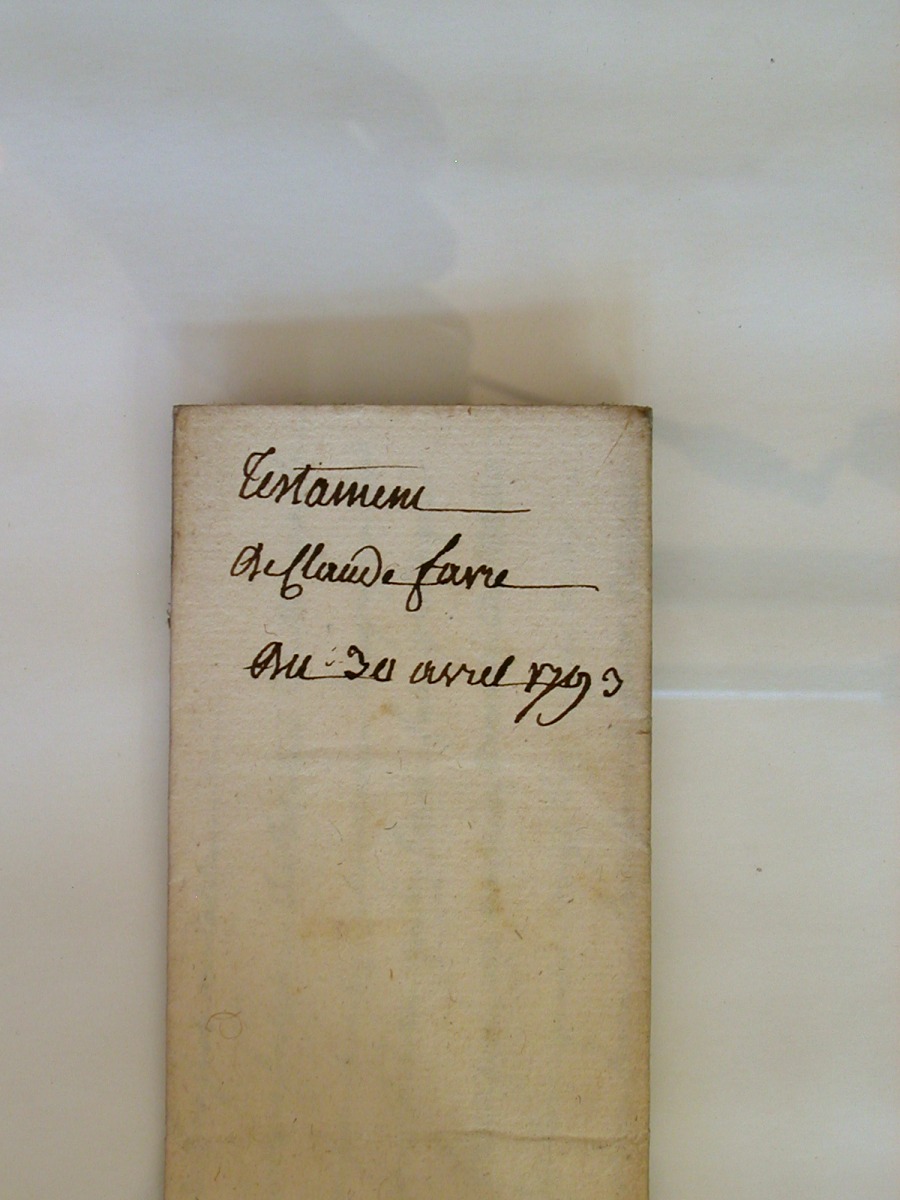 Testament
De Claude favre
Du 30 avril 1793